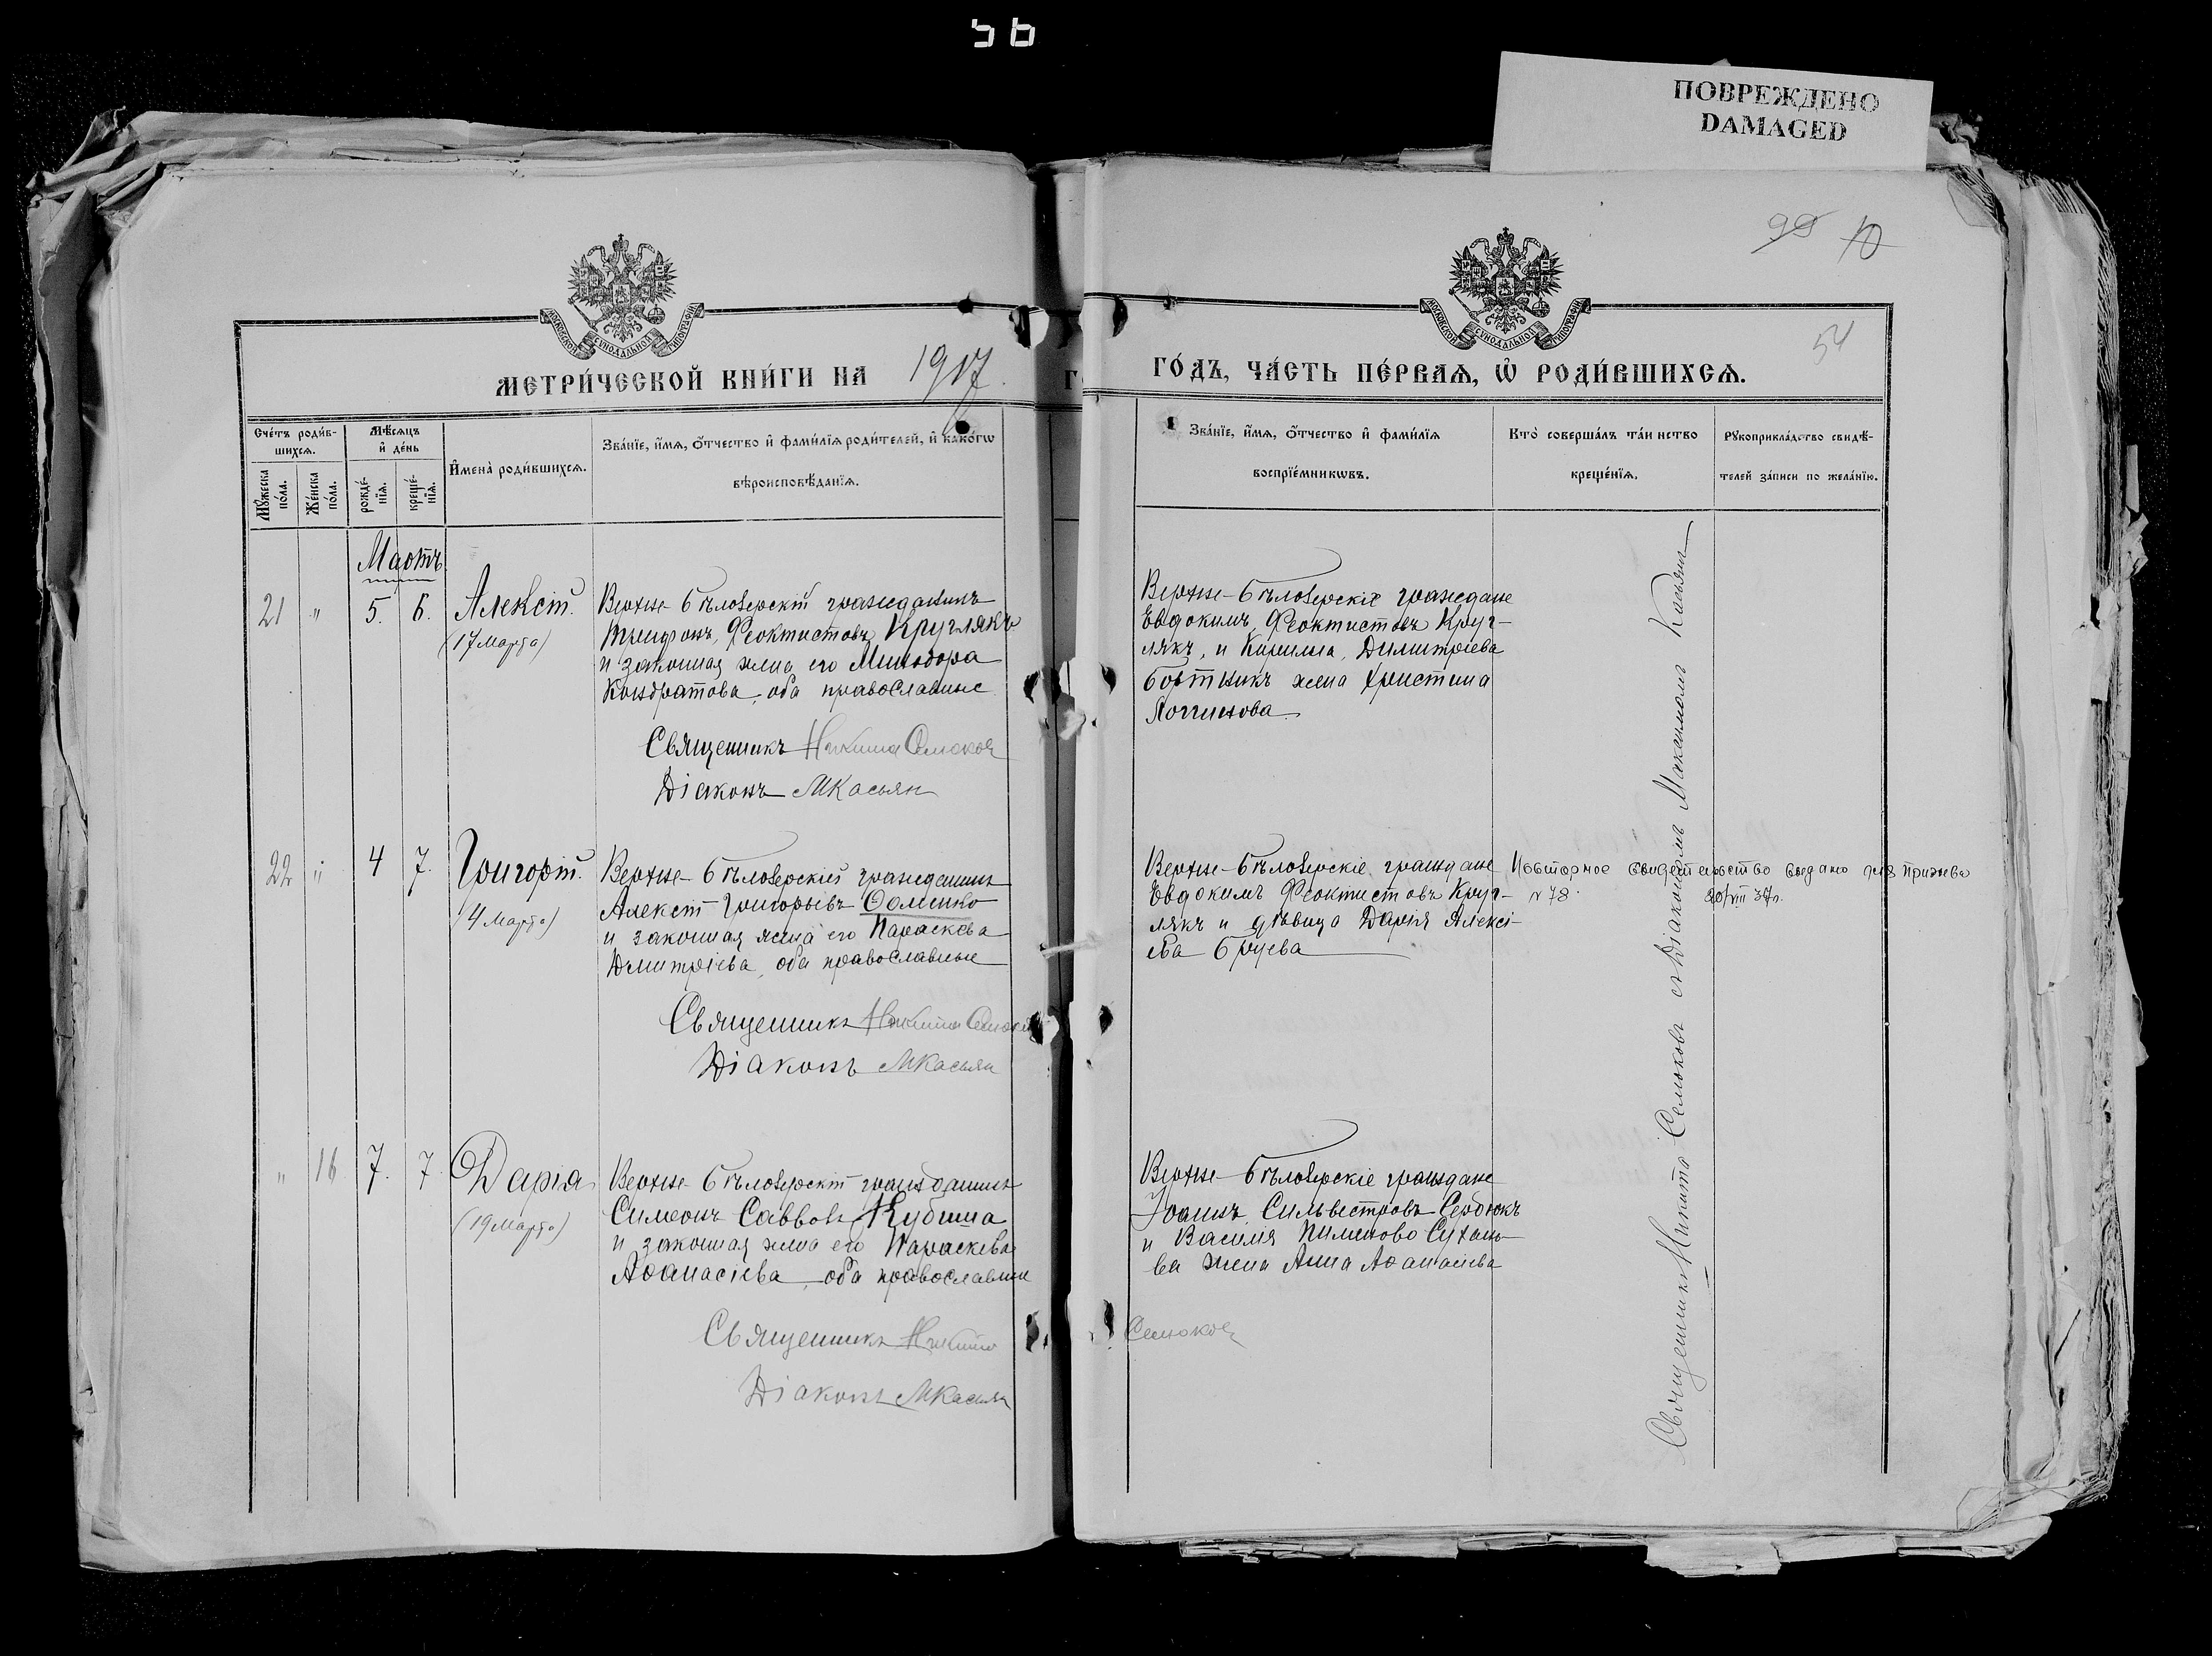 56
ПОВРЕЖДЕНО
DAMAGED
99 10
54
МОСКОВСКОЙ СѴНОДАЛЬНОЙ ТИПОГРАФІИ
МОСКОВСКОЙ СѴНОДАЛЬНОЙ ТИПОГРАФІИ
МЕТРИ́ЧЕСКОЙ КНИ́ГИ НА 1917
ГО́ДЪ, ЧА́СТЬ ПЕ́РВАѦ, Ѡ҆ РОДИ́ВШИХСѦ.
Сче́тъ роди́в-
шихсѧ.
Мꙋ́жеска по́ла.
Же́нска по́ла.
Мѣ́сѧцъ
и҆ де́нь
рожде́-
нїѧ.
креще́-
нїѧ.
И҆мена̀ роди́вшихсѧ.
Зва́нїе, и҆́мѧ, ѻ҆́тчество и҆ фами́лїѧ роди́телей, и҆ како́гѡ
вѣроисповѣ́данїѧ.
Зва́нїе, и҆́мѧ, ѻ҆́тчество и҆ фами́лїѧ
воспрїе́мникѡвъ.
Кто̀ соверша́лъ та́инство
креще́нїѧ.
Рꙋкоприкла́дство свидѣ́-
телей за́писи по жела́нїю.
Мартъ
21 " 5. 6. Алексій.
(17 Марта)
Верхне-Бѣлозерскій гражданинъ
Трифонъ Феоктистовъ Круглякъ
и законная жена его Минодора
Кондратова, оба православные
Священникъ Никита Семоковъ
Діаконъ МКасьян
Верхне-Бѣлозерскіе граждане
Евдокимъ Феоктистовъ Круг-
лякъ, и Кирилла Димитріева
Бортникъ жена Христина
Логгинова
22 " 4 7. Григорій.
(4 Марта)
Верхне-Бѣлозерскій гражданинъ
Алексій Григорьевъ Ѳоменко
и законная жена его Параскева
Дмитріева, оба православные
Священникъ Никита Семоков
Діаконъ МКасьян
Верхне-Бѣлозерскіе граждане
Евдокимъ Феоктистовъ Круг-
лякъ и дѣвица Дарія Алексі-
ева Бруева
Повторное свидетельство выдано для призыва
N 78. 20/VIII 37г.
" 16 7. 7 Дарія
(19 Марта)
Верхне-Бѣлозерскій гражданинъ
Симеонъ Саввовъ Кубина
и законная жена его Параскева
Аѳанасіева, оба православные
Священникъ Никита
Семоковъ
Діаконъ МКасьян
Верхне-Бѣлозерскіе граждане
Іоаннъ Сильвестровъ Сердюкъ
и Василія Пименово Сухань-
ва жена Анна Аѳанасіева
Священникъ Никита Семоковъ съ Діакономъ Максимомъ Касьяномъ